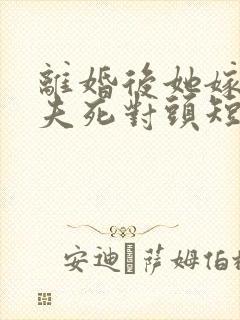 離婚後她嫁
夫死對頭短
安迪·薩姆伯格